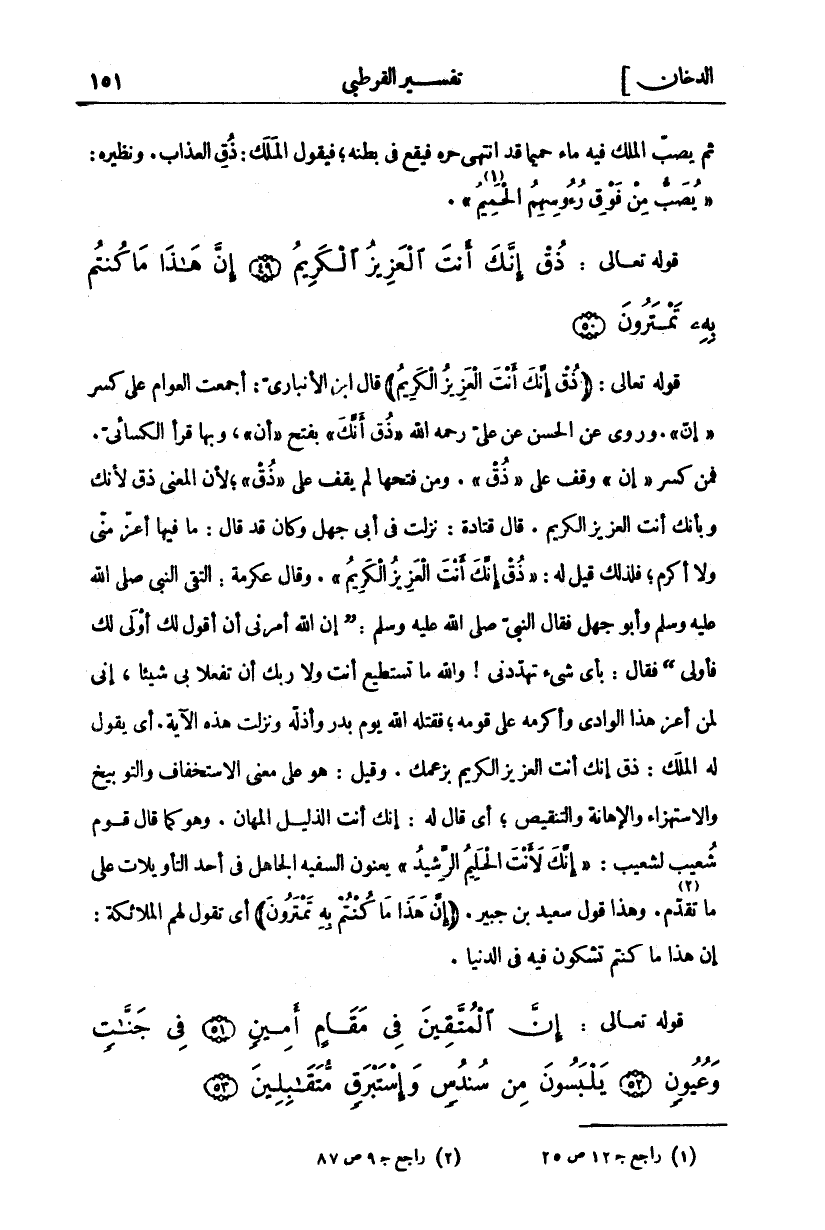 الدخان ] تفسير القرطبي ١٥١
ثم يصبّ الملك فيه ماء حميما قد انتهى حره فيقع فى بطنه؛ فيقول المَلَك: ذُقِ العذاب. ونظيره:
« يُصَبُّ مِنْ فَوْقِ رُءُوسِهِمُ الْحَمِيمُ (١) » .
قوله تعالى : ذُقْ إِنَّكَ أَنتَ ٱلْعَزِيزُ ٱلْكَرِيمُ ﴿٤٩﴾ إِنَّ هَـٰذَا مَا كُنتُم
بِهِۦ تَمْتَرُونَ ﴿٥٠﴾
قوله تعالى : ﴿ذُقْ إِنَّكَ أَنْتَ الْعَزِيزُ الْكَرِيمُ﴾ قال ابن الأنبارىّ: أجمعت العوام على كسر
« إنّ». وروى عن الحسن عن علىّ رحمه الله «ذُق أَنَّكَ» بفتح «أن»، وبها قرأ الكسائىّ.
فمن كسر « إن » وقف على « ذُقْ » . ومن فتحها لم يقف على «ذُقْ»؛ لأن المعنى ذق لأنك
وبأنك أنت العزيز الكريم . قال قتادة : نزلت فى أبى جهل وكان قد قال : ما فيها أعزّ منّى
ولا أكرم؛ فلذلك قيل له: « ذُقْ إِنَّكَ أَنْتَ الْعَزِيزُ الْكَرِيمُ» . وقال عكرمة : التقى النبى صلى الله
عليه وسلم وأبو جهل فقال النبىّ صلى الله عليه وسلم :” إن الله أمرنى أن أقول لك أوْلَى لك
فأولى “ فقال : بأى شىء تهدّدنى ! والله ما تستطيع أنت ولا ربك أن تفعلا بى شيئا ، إنى
لمن أعز هذا الوادى وأكرمه على قومه؛ فقتله الله يوم بدر وأذلّه ونزلت هذه الآية. أى يقول
له المَلَك : ذق إنك أنت العزيز الكريم بزعمك . وقيل : هو على معنى الاستخفاف والتوبيخ
والاستهزاء والإهانة والتنقيص ؛ أى قال له : إنك أنت الذليل المهان . وهو كما قال قوم
شُعيب لشعيب : « إِنَّكَ لَأَنْتَ الْحَلِيمُ الرَّشِيدُ » يعنون السفيه الجاهل فى أحد التأويلات على
ما تقدّم (٢). وهذا قول سعيد بن جبير . ﴿إِنَّ هَذَا مَا كُنْتُمْ بِهِ تَمْتَرُونَ﴾ أى تقول لهم الملائكة :
إن هذا ما كنتم تشكون فيه فى الدنيا .
قوله تعالى : إِنَّ ٱلْمُتَّقِينَ فِى مَقَامٍ أَمِينٍ ﴿٥١﴾ فِى جَنَّـٰتٍ
وَعُيُونٍ ﴿٥٢﴾ يَلْبَسُونَ مِن سُندُسٍ وَإِسْتَبْرَقٍ مُّتَقَـٰبِلِينَ ﴿٥٣﴾
(١) راجع جـ ١٢ ص ٢٥ (٢) راجع جـ ٩ ص ٨٧